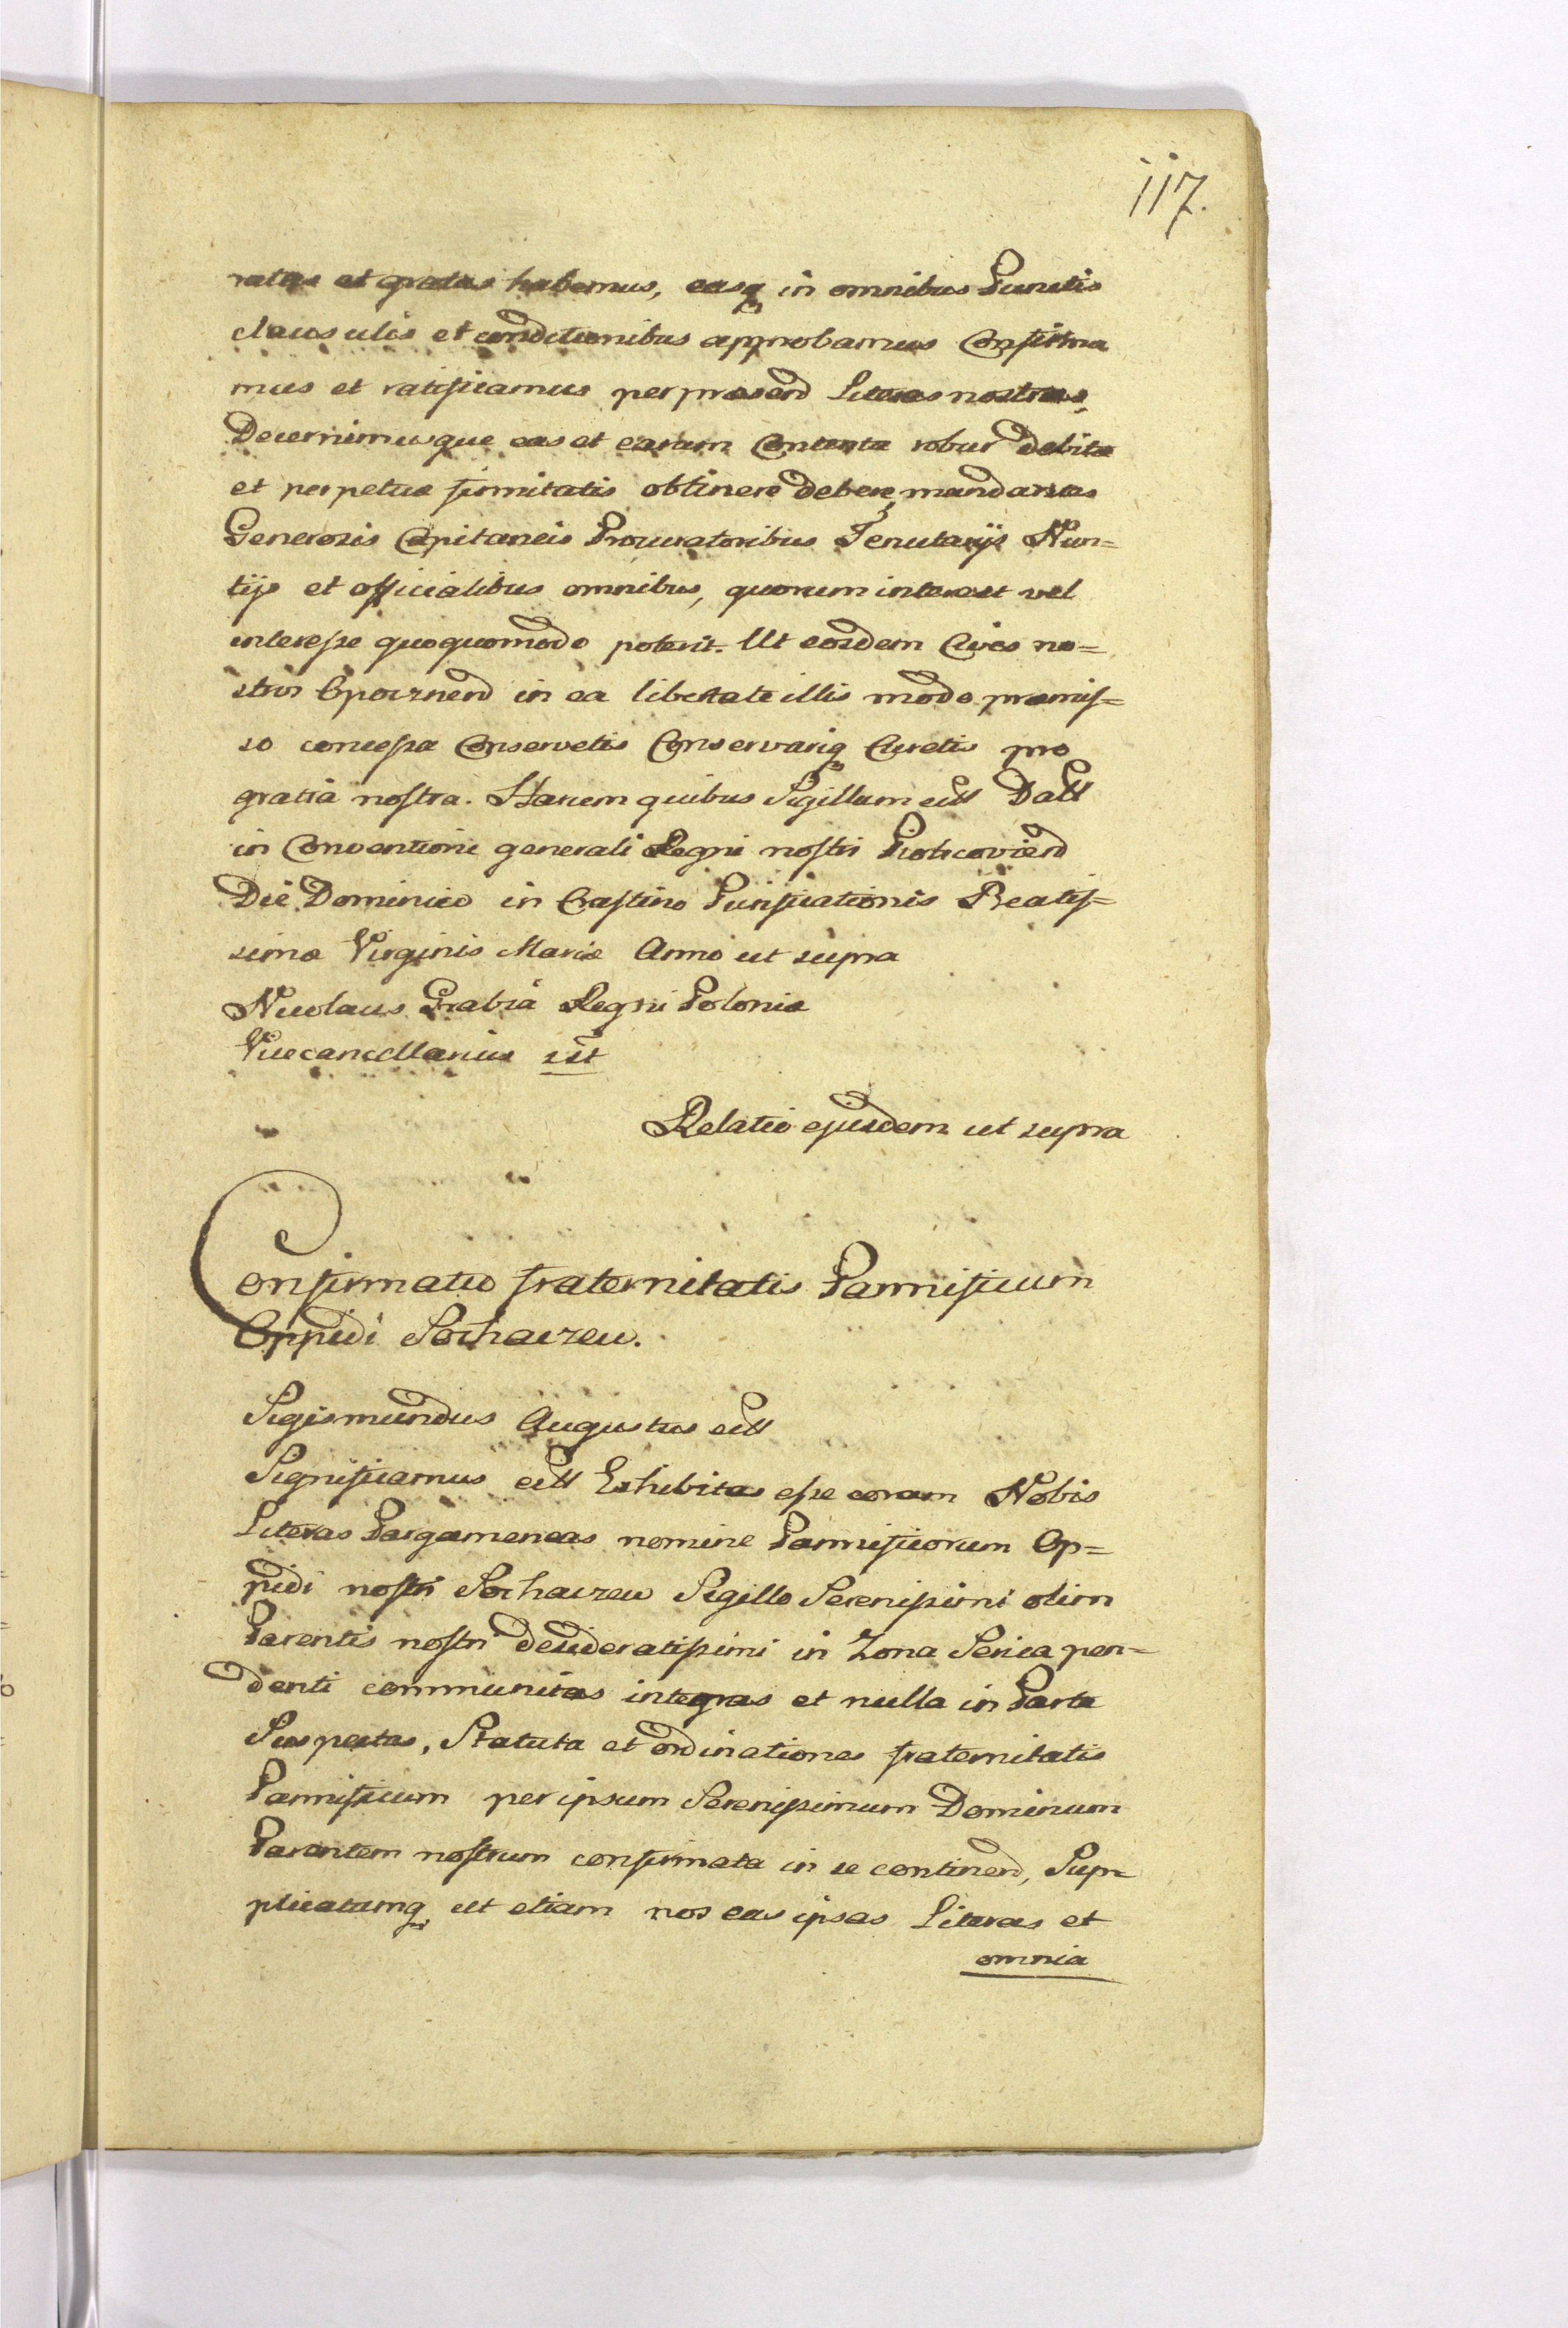 117.
ratas et gratas habemus, easq in omnibus Punctis
clausulis et conditionibus approbamus Confirma
mus et ratificamus per præsend Literas nostras,
Decernimusque eas et earum Contenta robur debitæ
et perpetuæ firmitatis obtinere debere, mandantes
Generosis Capitaneis Procuratoribus Tenutarijs Nun=
tijs et officialibus omnibus, quorum interest vel
interesse quoquomodo poterit. Ut eosdem Cives no=
stros Opocznend in ea libertate illis modo præmis=
so concessa Conservetis Conservariq Curetis pro
gratia nostra. Harum quibus Sigillum ett Datt
in Conventione generali Regni nostri Piotrcoviend
Die Dominico in Crastino Purificationis Beatis=
simæ Virginis Mariæ Anno ut supra
Nicolaus Grabia Regni Poloniæ
Vicecancellarius sst
Relatio ejusdem ut supra
Confirmatio fraternitatis Pannificum
Oppidi Sochaczew.
Sigismundus Augustus ett
Significamus ett Exhibitas esse coram Nobis
Literas Pargameneas nomine Pannificorum Op=
pidi nostri Sochaczew Sigillo Serenissimi olim
Parentis nostri desideratissimi in Zona Serica pen=
denti communitas integras et nulla in Parte
Suspectas, Statuta et ordinationes fraternitatis
Pannificum per ipsum Serenissimum Dominum
Parentem nostrum confirmata in se continend, Sup=
plicatumq ut etiam nos eas ipsas Literas et
omnia